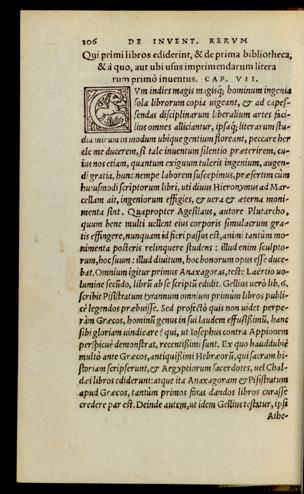 106 DE INVENT. RERUM
Qui primi libros ediderint, & de prima bibliotheca,
& à quo, aut ubi usus imprimendarum litera
rum primò inuentus. CAP. VII.
CVm indies magis magisq; hominum ingenia
sola librorum copia uigeant, & ad capes-
sendas disciplinarum liberalium artes faci
lius omnes alliciantur, ipsaq; literarum stu-
dia mirum in modum ubique gentium floreant, peccare her
cle me ducerem, si tale inuentum silentio præterirem, cu
ius nos etiam, quantum exiguum tulerit ingenium, augen
di gratia, hunc nempe laborem suscepimus, præsertim cùm
huiusmodi scriptorum libri, uti diuus Hieronymus ad Mar
cellam ait, ingeniorum effigies, & uera & æterna moni
menta sint. Quapropter Agesilaus, autore Plutarcho,
quum bene multi uellent eius corporis simulacrum gra
tis effingere, nunquam id fieri passus est, animi tantùm mo
nimenta posteris relinquere studens: illud enim sculpto
rum, hoc suum: illud diuitum, hoc bonorum opus esse duce
bat. Omnium igitur primus Anaxagoras, teste Laërtio uo
lumine secūdo, librū ab se scriptū edidit. Gellius uerò lib. 6.
scribit Pisistratum tyrannum omnium primùm libros public
cè legendos præbuisse. Sed profectò quis non uidet perpe-
ràm Græcos, hominū genus in sui laudem effusissimū, hanc
sibi gloriam uindicare? qui, ut Iosephus contra Appionem
perspicuè demonstrat, recentissimi sunt. Ex quo hauddubiè
multò ante Græcos, antiquissimi Hebræorū, qui sacram hi
storiam scripserunt, & Aegyptiorum sacerdotes, uel Chal
dæi libros ediderunt: atque ita Anaxagoram & Pisistratum
apud Græcos, tantùm primos foras dandos libros curasse
credere par est. Deinde autem, ut idem Gellius testatur, ipsi
Athe-